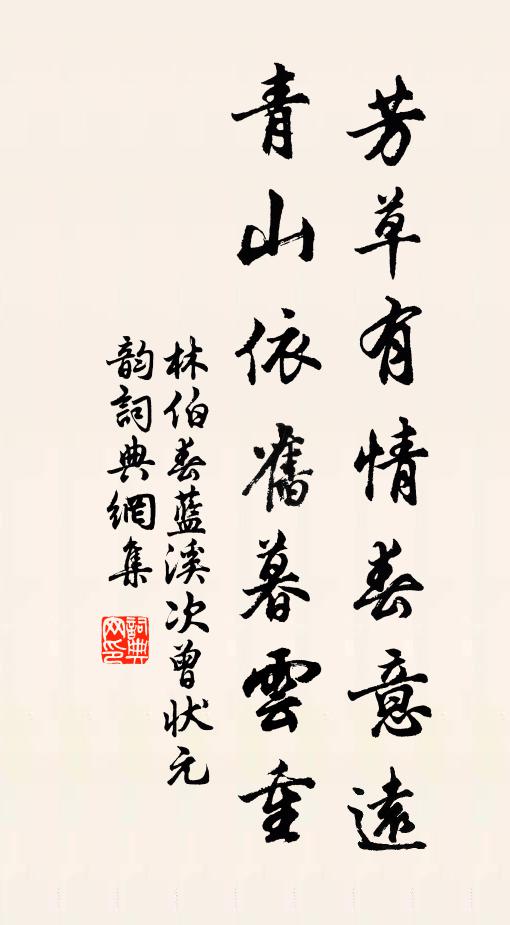 芳草有情春意遠
青山依舊暮雲重
林伯春藍溪次曾狀元
韵詞典網集
詞典网印